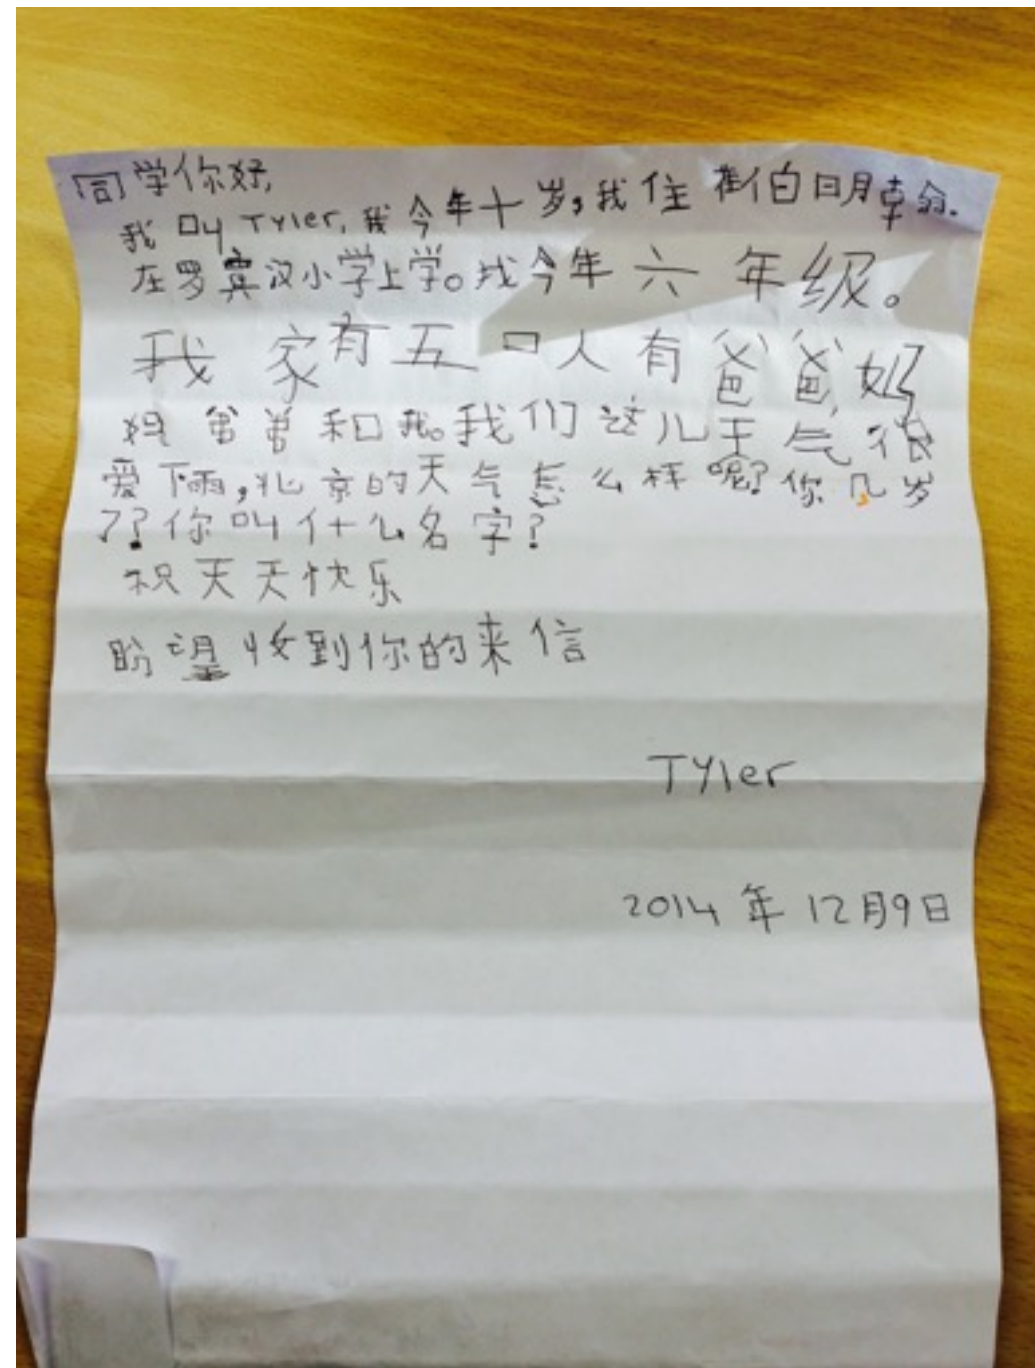 同学你好,
我叫Tyler,我今年十岁,我住在伯明翰.
在罗宾汉小学上学。我今年六年级。
我家有五口人有爸爸,妈
妈弟弟和我。我们这儿天气很
爱下雨,北京的天气怎么样呢?你几岁
了?你叫什么名字?
祝天天快乐
盼望收到你的来信
Tyler
2014年12月9日